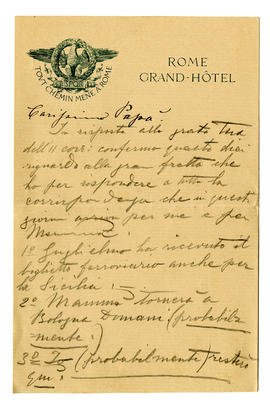 TOVT CHEMIN MENE A ROME
ROME
GRAND-HÔTEL
Carissimo Papà
In risposta alla grata tua
dell'11 corr: confermo quanto dici
riguardo alla gran fretta che
ho per rispondere a tutta la
corrispondenza che in questi
giorni per me e per
1º Guglielmo ha ricevuto il
biglietto ferroviario anche per
la Sicilia! —
2º Mamma tornerà a
Bologna Domani (probabil-
mente!)
3º Io (probabilmente) resterò
qui! —